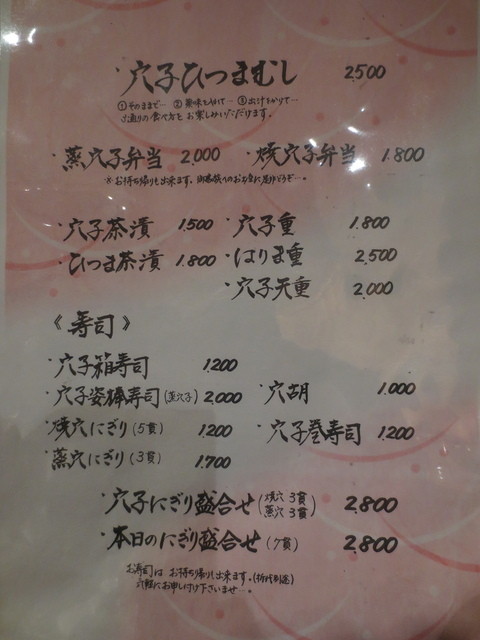 ・穴子ひつまむし 2500
①そのままで… ②薬味を入れて… ③出汁をかけて…
3通りの食べ方を お楽しみいただけます。
・蒸穴子弁当 2,000 ・焼穴子弁当 1.800
※お持ち帰りも出来ます。御家族へのお土産に是非どうぞ…。
・穴子茶漬 1,500 ・穴子重 1.800
・ひつま茶漬 1.800 ・はりま重 2,500
・穴子天重 2,000
《 寿司 》
・穴子箱寿司 1,200
・穴子姿棒寿司(蒸穴子) 2,000 ・穴胡 1.000
・焼穴にぎり(5貫) 1,200 ・穴子巻寿司 1,200
・蒸穴にぎり(3貫) 1.700
・穴子にぎり盛合せ(焼穴3貫 蒸穴3貫) 2,800
・本日のにぎり盛合せ(7貫) 2,800
お寿司は お持ち帰りも出来ます。(折代別途)
お申し付け下さいませ…。